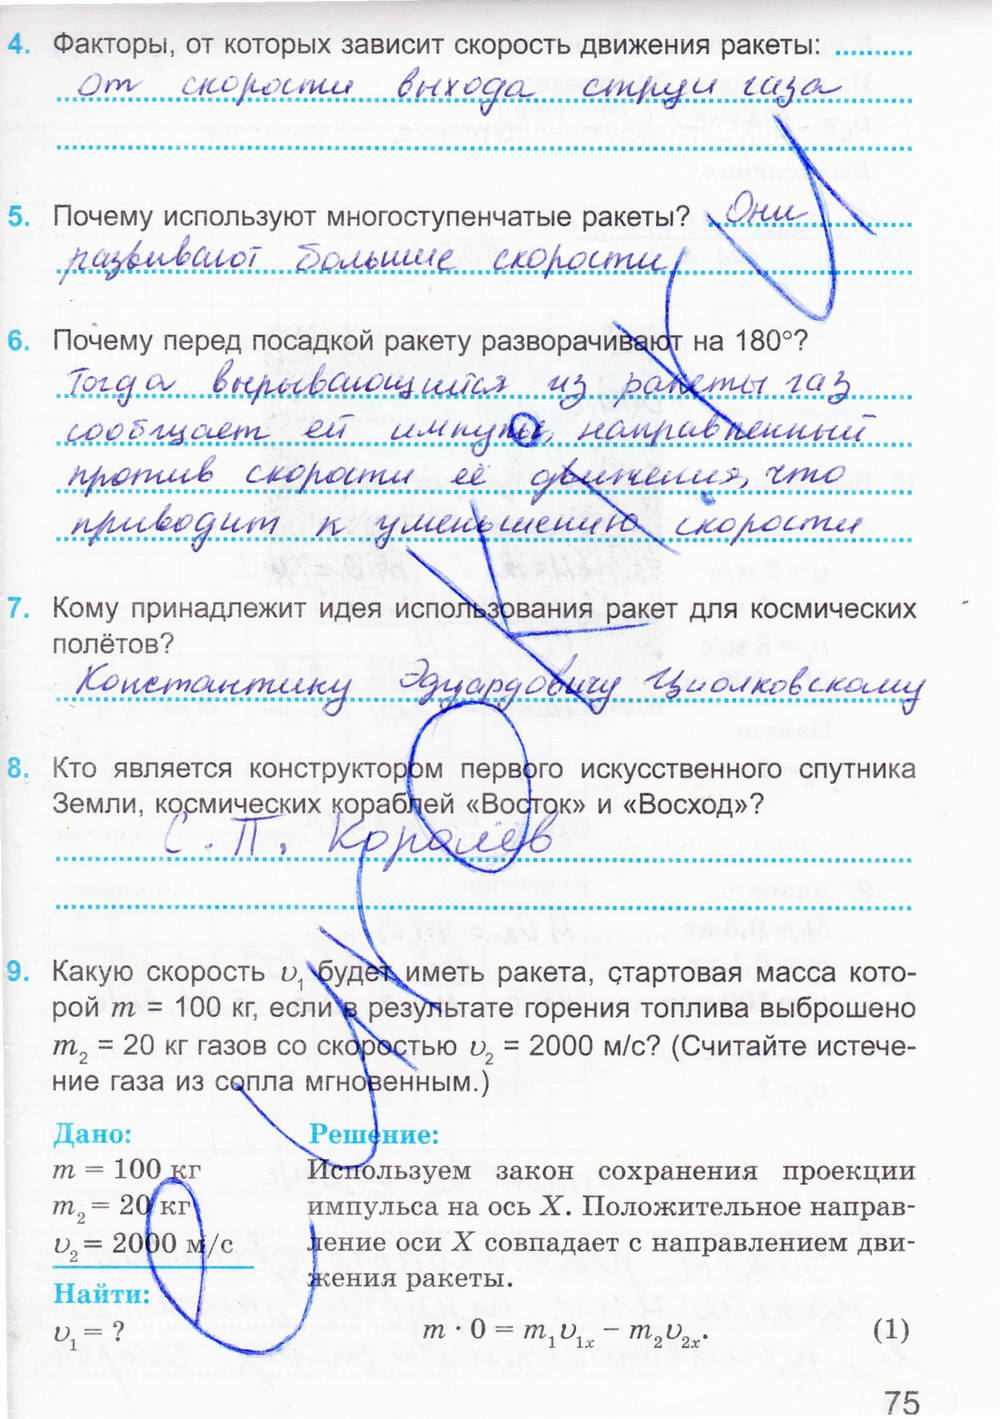 4. Факторы, от которых зависит скорость движения ракеты:
От скорости выхода струи газа
5. Почему используют многоступенчатые ракеты? Они
развивают большие скорости
6. Почему перед посадкой ракету разворачивают на 180°?
Тогда вырывающийся из ракеты газ
сообщает ей импульс, направленный
против скорости её движения, что
приводит к уменьшению скорости
7. Кому принадлежит идея использования ракет для космических
полётов?
Константину Эдуардовичу Циолковскому
8. Кто является конструктором первого искусственного спутника
Земли, космических кораблей «Восток» и «Восход»?
С. П. Королёв
9. Какую скорость υ₁ будет иметь ракета, стартовая масса кото-
рой m = 100 кг, если в результате горения топлива выброшено
m₂ = 20 кг газов со скоростью υ₂ = 2000 м/с? (Считайте истече-
ние газа из сопла мгновенным.)
Дано:
m = 100 кг
m₂ = 20 кг
υ₂ = 2000 м/с
Найти:
υ₁ = ?
Решение:
Используем закон сохранения проекции
импульса на ось X. Положительное направ-
ление оси X совпадает с направлением дви-
жения ракеты.
m · 0 = m₁υ₁ₓ – m₂υ₂ₓ. (1)
75